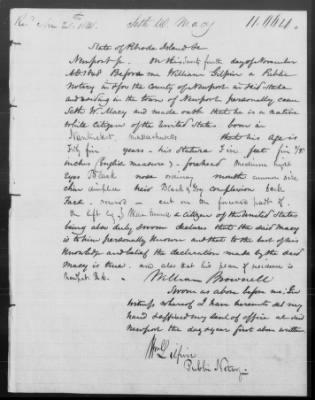 Seth W Macy 11.664.
State of Rhode Island &c
Newport ss. On this twenty fourth day of November
AD 1848 Before me William Gilpin a Public
Notary in & for the County of Newport in said State
and residing in the town of Newport personally came
Seth W. Macy, and made oath that he is a native
White citizen of the United States born in
Nantucket Massachusetts that his age is
Fifty five years - his stature 5 feet five 1/2
inches (English measure) - forehead medium high
Eyes Black nose ordinary mouth common size
chin hair Black & Grey complexion dark
Face - cut on the forward part of
the left leg. a citizen of the United States
being also duly sworn declares that the said Macy
is to him personally known and that to the best of his
knowledge and belief the declaration made by the said
Macy is true. and also that his place of residence is
Newport R.I. - William Brownell
Sworn as above before me, In
witness whereof I have hereunto set my
hand & affixed my seal of office at said
Newport the day & year first above written
Wm Gilpin
Public Notary